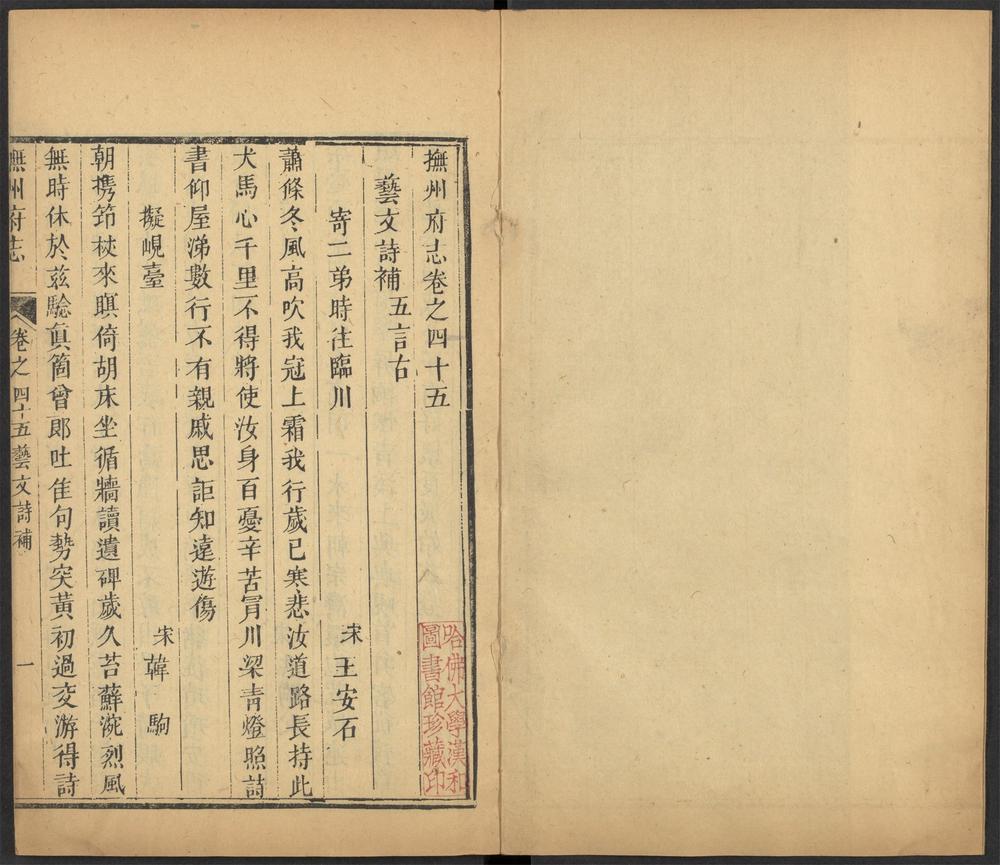 撫州府志卷之四十五
藝文詩補 五言古
寄二弟時往臨川 宋 王安石
蕭條冬風高吹我冠上霜我行歲已寒悲汝道路長持此
犬馬心千里不得將使汝身百憂辛苦冐川梁青燈照詩
書仰屋涕數行不有親戚思詎知遠遊傷
擬峴臺 宋 韓駒
朝携笻杖來瞑倚胡床坐循牆讀遺碑歲久苔蘚涴烈風
無時休於兹驗眞箇曾郎吐佳句勢突黃初過交游得詩
撫州府志 卷之四十五藝文詩補 一
哈佛大學漢和
圖書館珍藏印